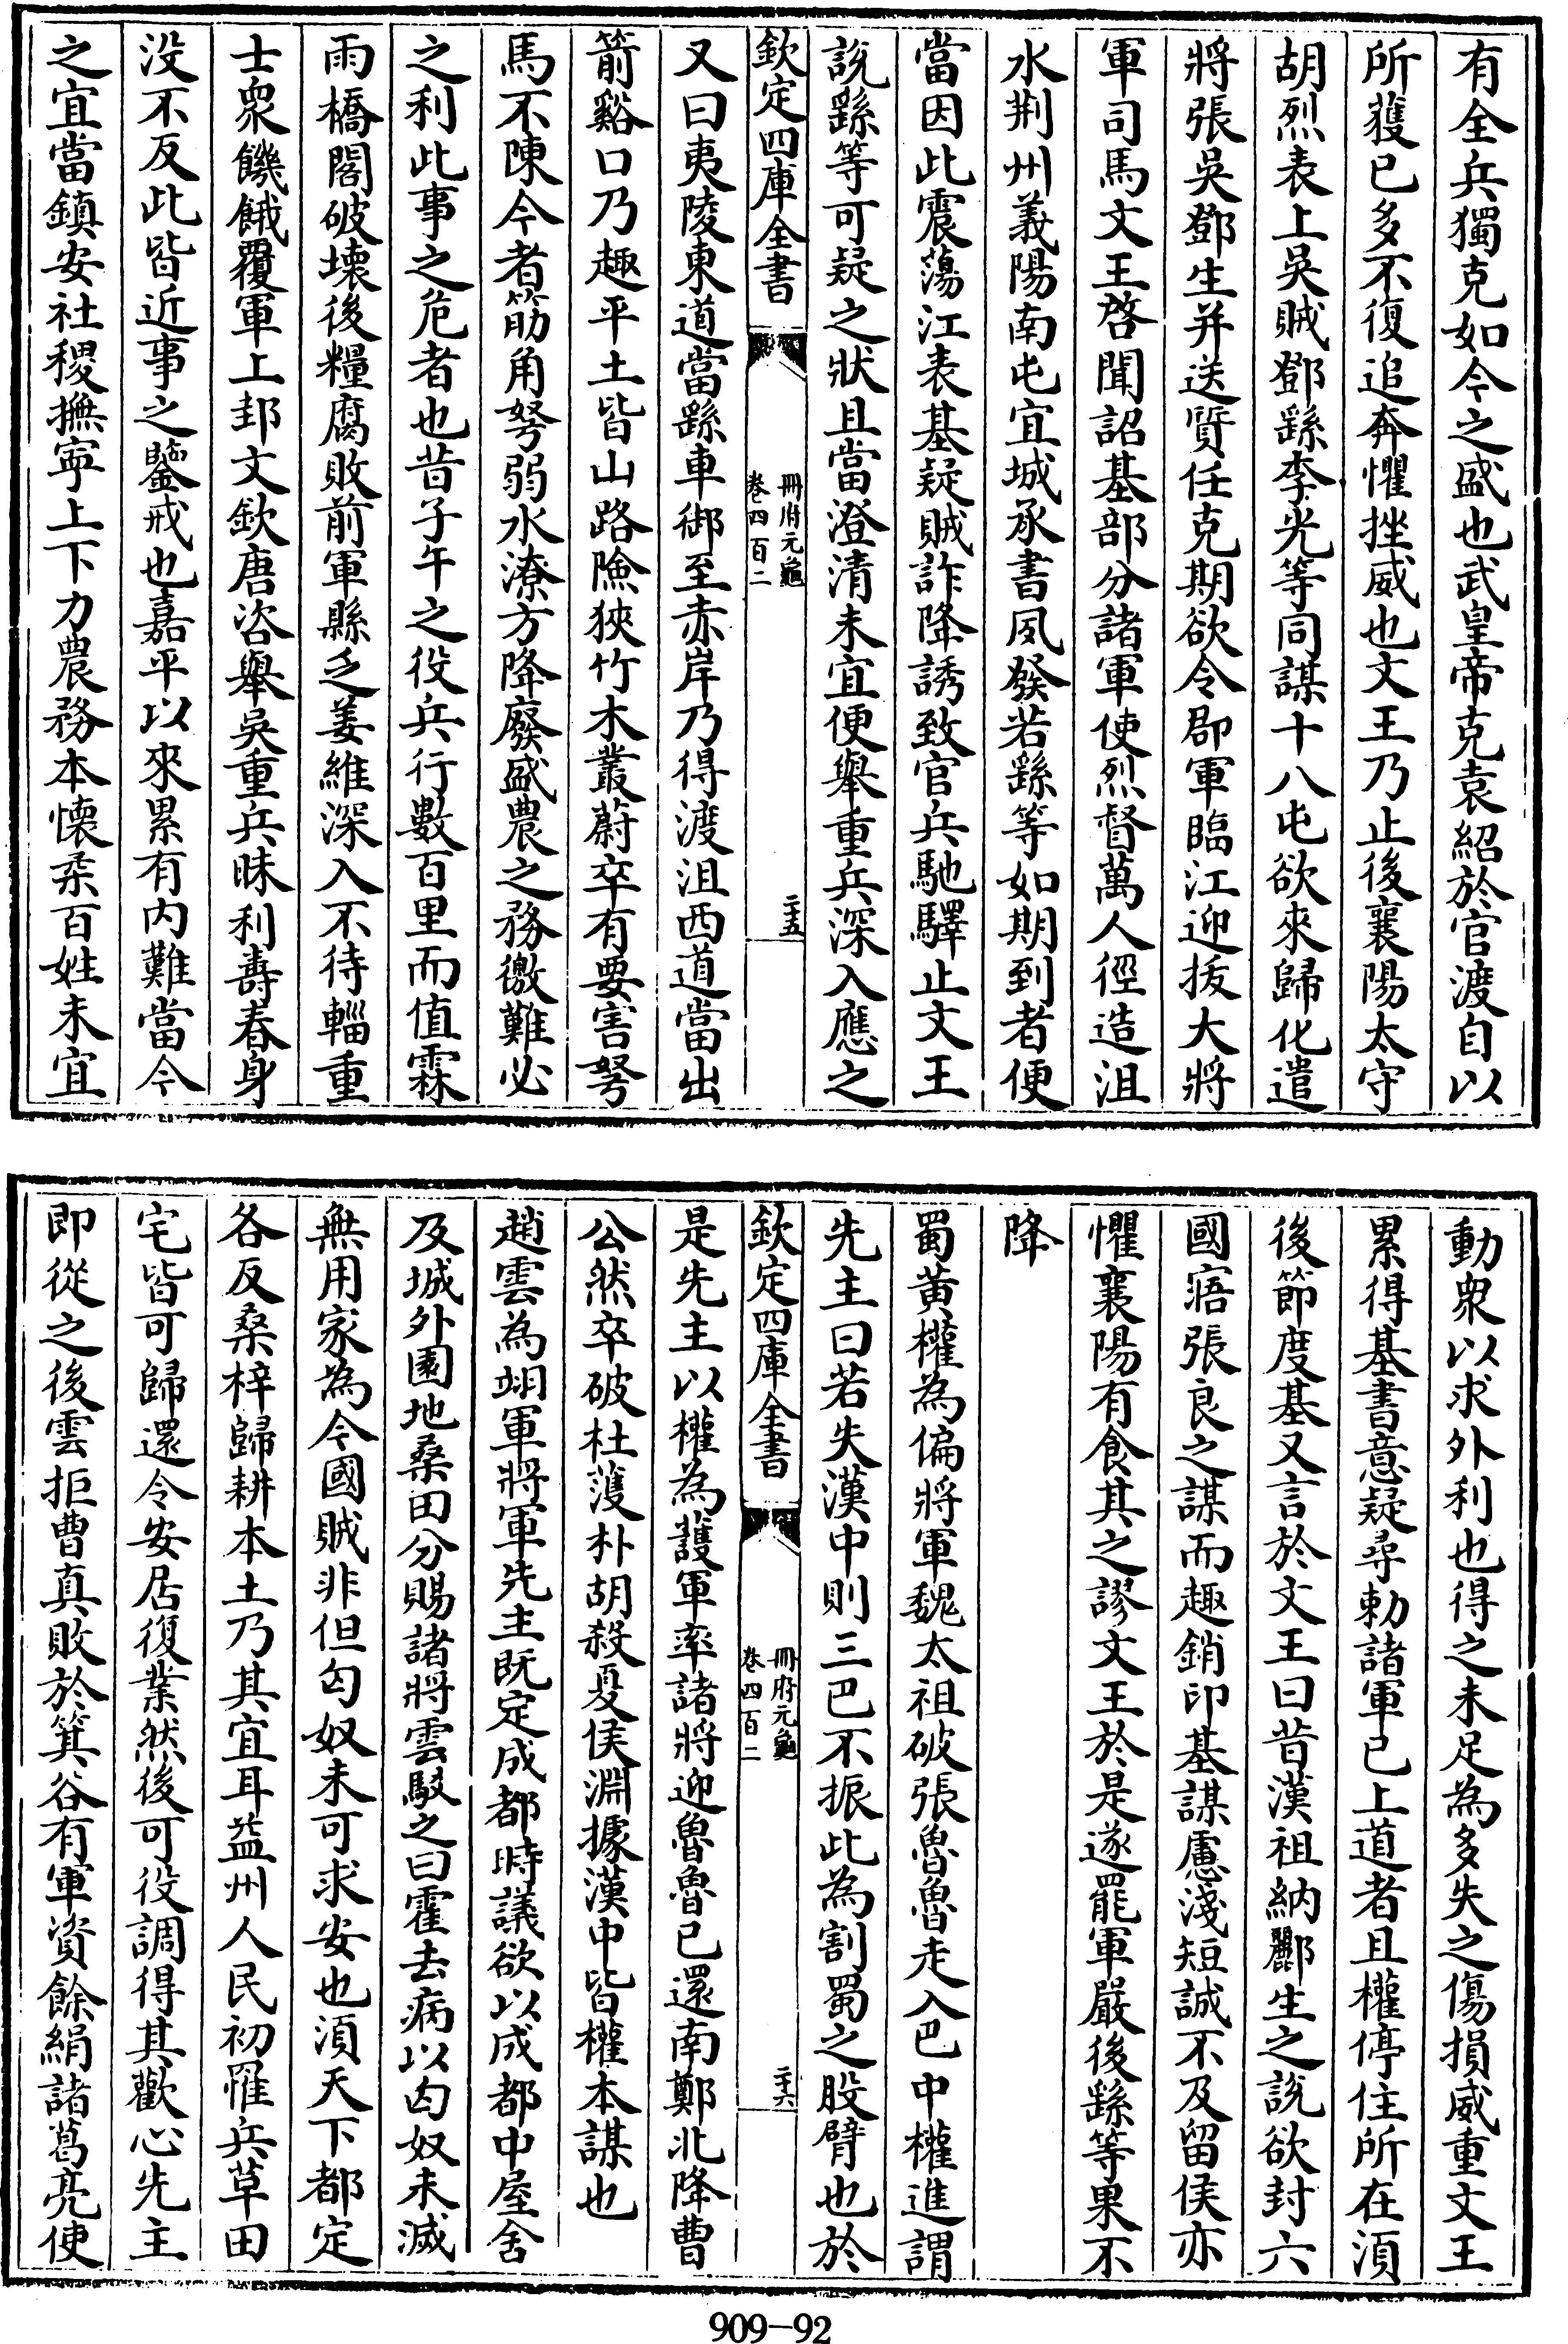 有全兵獨克如今之盛也武皇帝克袁紹於官渡自以
所獲已多不復追奔懼挫威也文王乃止後襄陽太守
胡烈表上吳賊鄧繇李光等同謀十八屯欲來歸化遣
將張吳鄧生并送質任克期欲令郡軍臨江迎拔大將
軍司馬文王啓聞詔基部分諸軍使烈督萬人徑造沮
水荆州義陽南屯宜城承書夙發若繇等如期到者便
當因此震蕩江表基疑賊詐降誘致官兵馳驛止文王
說繇等可疑之狀且當澄清未宜便舉重兵深入應之
欽定四庫全書
冊府元龜
卷四百二
二十五
又曰夷陵東道當繇車御至赤岸乃得渡沮西道當出
箭谿口乃趣平土皆山路險狹竹木叢蔚卒有要害弩
馬不陳今者筋角弩弱水潦方降廢盛農之務徼難必
之利此事之危者也昔子午之役兵行數百里而值霖
雨橋閣破壞後糧腐敗前軍縣乏姜維深入不待輜重
士衆饑餓覆軍上邽文欽唐咨舉吳重兵昧利壽春身
没不反此皆近事之鑒戒也嘉平以來累有内難當今
之宜當鎮安社稷撫寧上下力農務本懷柔百姓未宜
動衆以求外利也得之未足為多失之傷損威重文王
累得基書意疑尋勅諸軍已上道者且權停住所在須
後節度基又言於文王曰昔漢祖納酈生之說欲封六
國寤張良之謀而趣銷印基謀慮淺短誠不及留侯亦
懼襄陽有食其之謬文王於是遂罷軍嚴後繇等果不
降
蜀黄權為偏將軍魏太祖破張魯魯走入巴中權進謂
先主曰若失漢中則三巴不振此為割蜀之股臂也於
欽定四庫全書
冊府元龜
卷四百二
二十六
是先主以權為護軍率諸將迎魯魯已還南鄭北降曹
公然卒破杜濩朴胡殺夏侯淵據漢中皆權本謀也
趙雲為翊軍將軍先主既定成都時議欲以成都中屋舍
及城外園地桑田分賜諸將雲駮之曰霍去病以匈奴未滅
無用家為今國賊非但匈奴未可求安也須天下都定
各反桑梓歸耕本土乃其宜耳益州人民初罹兵草田
宅皆可歸還令安居復業然後可役調得其歡心先主
即從之後雲拒曹真敗於箕谷有軍資餘絹諸葛亮使
909-92